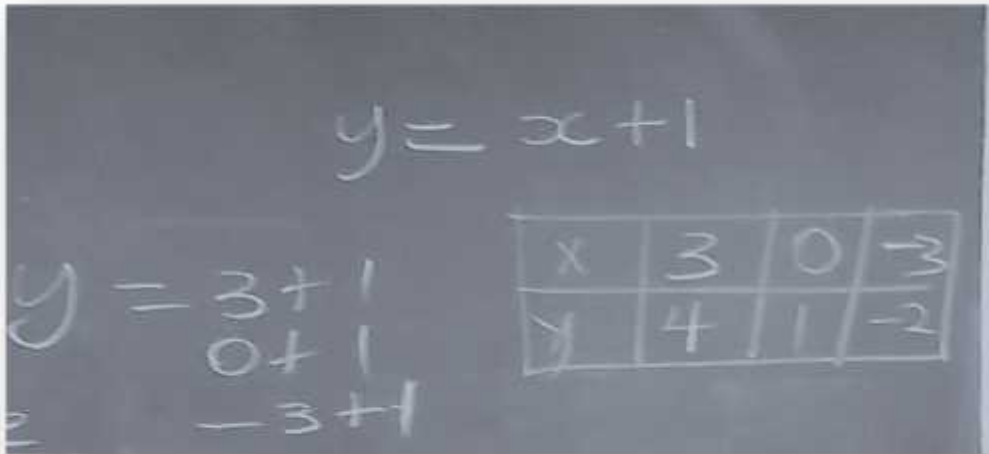 y = x + 1
y = 3 + 1
0 + 1
- 3 + 1
x 3 0 -3
y 4 1 -2